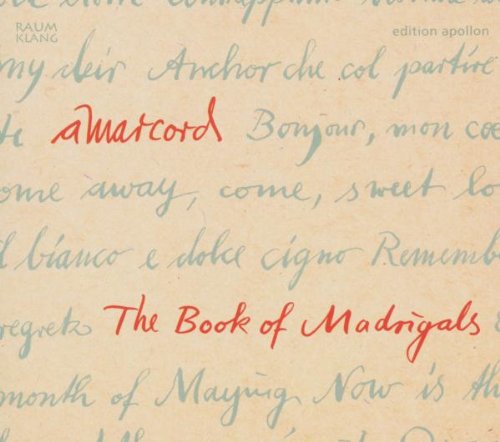 RAUM
KLANG
edition apollon
my deir Anchor che col partire
amarcord Bonjour, mon
ome away, come, sweet lo
bianco e dolce cigno Rememb
regretz The Book of Madrigals
month of Maying Now is th